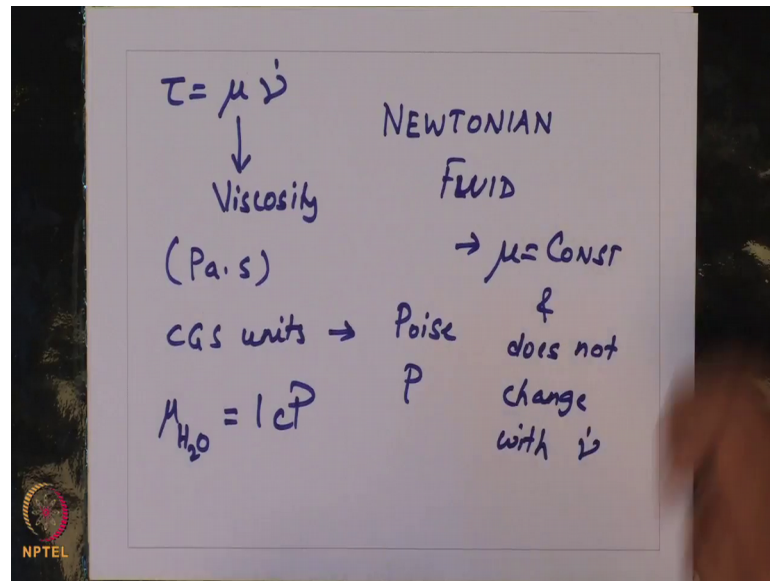 τ = μ γ̇
Viscosity
(Pa.s)
CGS units → Poise
P
μH₂O = 1 cP
NEWTONIAN
FLUID
→ μ = CONST
&
does not
change
with γ̇
NPTEL